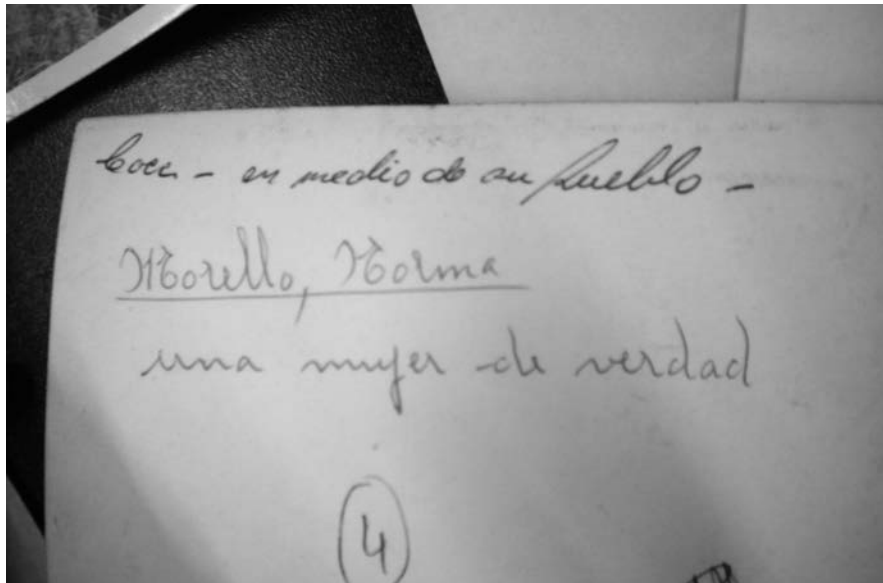 Coca - en medio de su pueblo -
Morello, Norma
una mujer de verdad
4